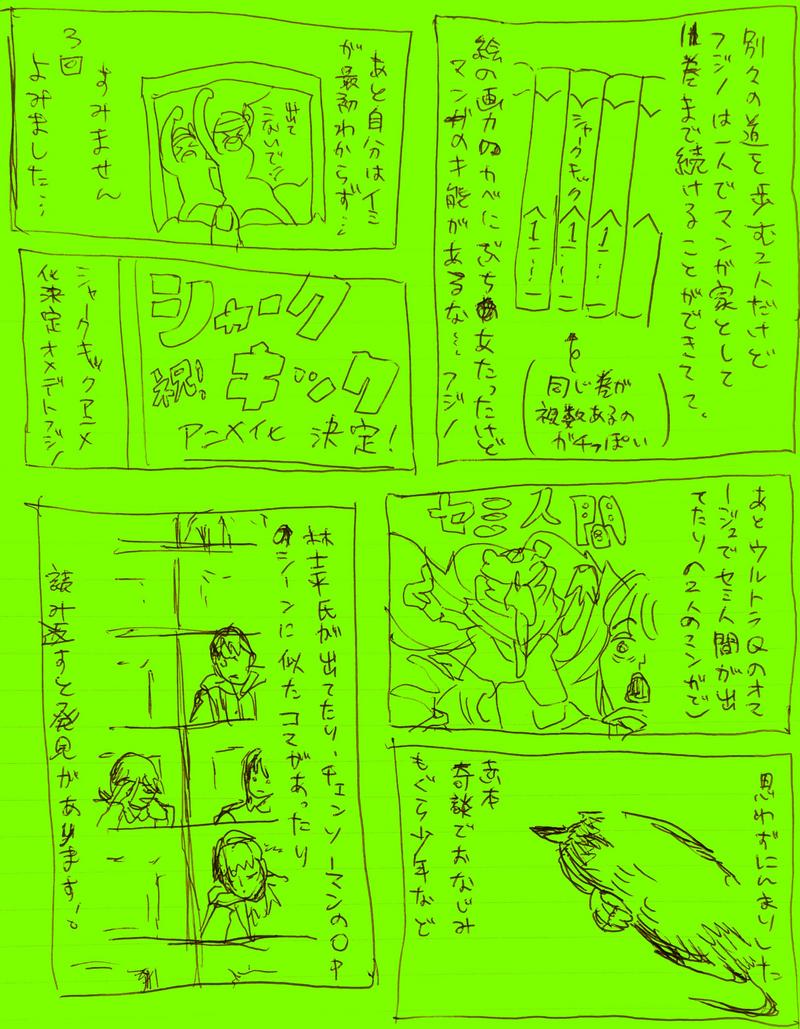 別々の道を歩む2人だけど
フジノは一人でマンガ家として
11巻まで続けることができてて。
シャークキック
1
1
1
同じ巻が
複数あるの
がチっぽい
絵の画力のカベにぶちあたったけど
マンガの才能があるな… フジノ
あと自分はイミ
が最初わからず…
出て
こないで!!
すみません
3回
よみました…
シャーク
キック
祝!
アニメイヒ 決定!
シャークキックアニメ
化決定オメデトフジノ
あとウルトラQのオマ
ージュでセミ人間が出
てたり(2人のマンガで)
セミ人間
思わずにんまりした
赤本
奇談でおなじみ
もぐら少年など
林士平氏が出てたり、チェンソーマンのOP
のシーンに似たコマがあったり
読み返すと発見があります!。